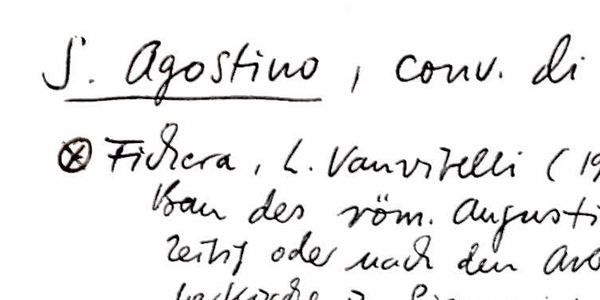 S. Agostino, conv. di
⊗ Fichera, L. Vanvitelli (19
Bau des röm. Augusti
zeitig oder nach den Arb